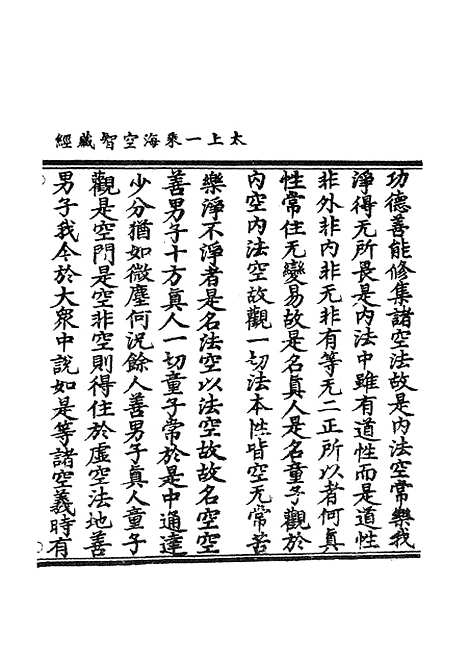 太上一乘海空智藏經
功德善能修集諸空法故是內法空常樂我
淨得无所畏是內法中雖有道性而是道性
非外非內非无非有等无二正所以者何真
性常住无變易故是名真人是名童子觀於
內空內法空故觀一切法本性皆空无常苦
樂淨不淨者是名法空以法空故故名空空
善男子十方真人一切童子常於是中通達
少分猶如微塵何況餘人善男子真人童子
觀是空門是空非空則得住於虛空法地善
男子我今於大衆中說如是等諸空義時有